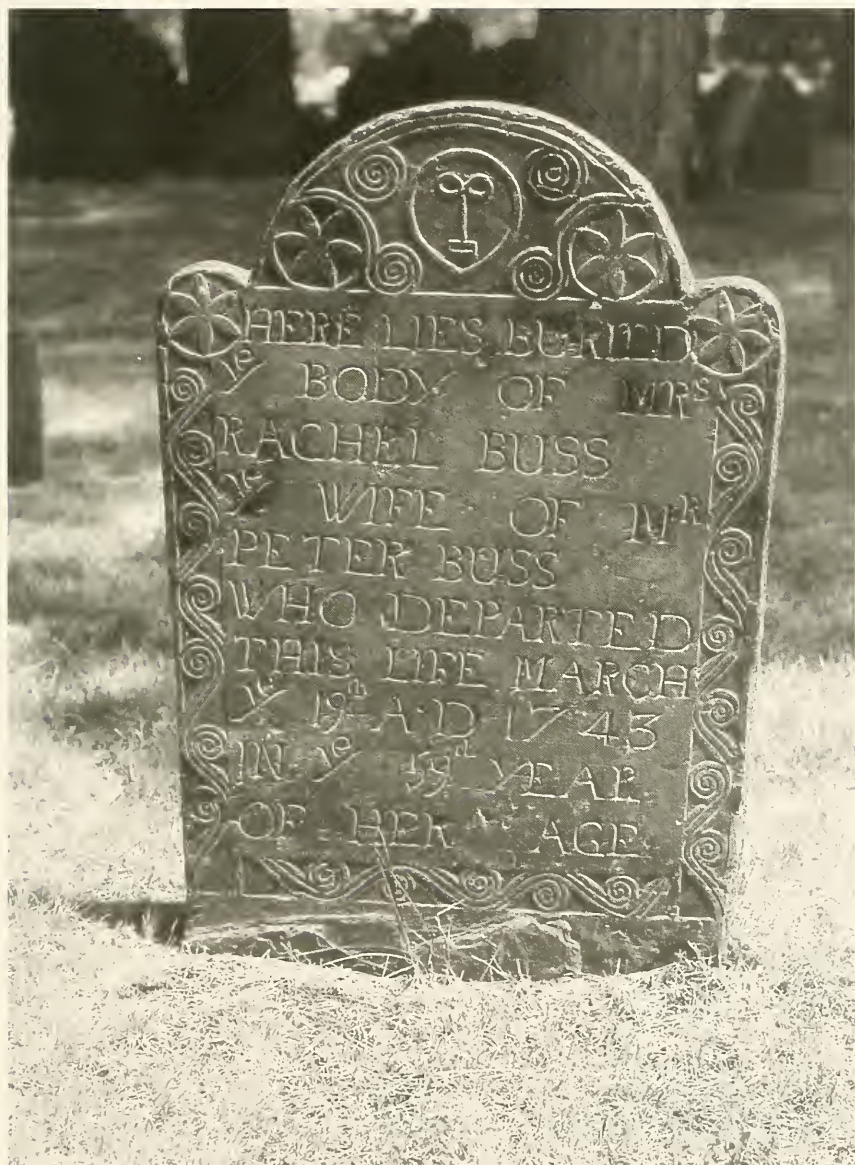 HERE LIES BURIED
yᵉ BODY OF MRˢ
RACHEL BUSS
yᵉ WIFE OF Mᴿ
PETER BUSS
WHO DEPARTED
THIS LIFE MARCH
yᵉ 19ᵗʰ A·D 1743
IN yᵉ YEAR
OF HER AGE